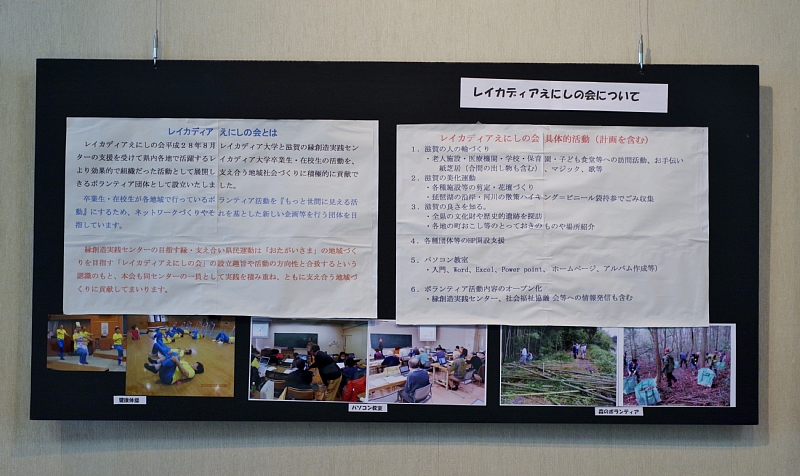 レイカディアえにしの会について
レイカディアえにしの会とは
レイカディアえにしの会平成28年8月レイカディア大学と滋賀の縁創造実践セン
ターの支援を受けて県内各地で活躍するレイカディア大学卒業生・在校生の活動を、
より効果的で組織だった活動として展開し支え合う地域社会づくりに積極的に貢献で
きるボランティア団体として設立いたしました。
卒業生・在校生が各地域で行っているボランティア活動を『もっと世間に見える活
動』にするため、ネットワークづくりやそれを基とした新しい企画等を行う団体を目
指しています。
縁創造実践センターの目指す縁・支え合い県民運動は「おたがいさま」の地域づく
りを目指す「レイカディアえにしの会」の設立趣旨や活動の方向性と合致するという
認識のもと、本会も同センターの一員として実践を積み重ね、ともに支え合う地域づ
くりに貢献してまいります。
レイカディアえにしの会 具体的活動（計画を含む）
1．滋賀の人の輪づくり
・老人施設・医療機関・学校・保育園・子ども食堂等への訪問活動、お手伝い
紙芝居（合間の出し物も含む）、マジック、歌等
2．滋賀の美化運動
・各種施設等の剪定・花壇づくり
・琵琶湖の沿岸・河川の散策ハイキング＝ビニール袋持参でごみ収集
3．滋賀の良さを知る。
・全県の文化財や歴史的遺跡を探訪
・各地の町おこし等のとっておきのものや場所紹介
4．各種団体等のHP開設支援
5．パソコン教室
・入門、Word、Excel、Power point、ホームページ、アルバム作成等）
6．ボランティア活動内容のオープン化
・縁創造実践センター、社会福祉協議会等への情報発信も含む
健康体操
パソコン教室
森のボランティア